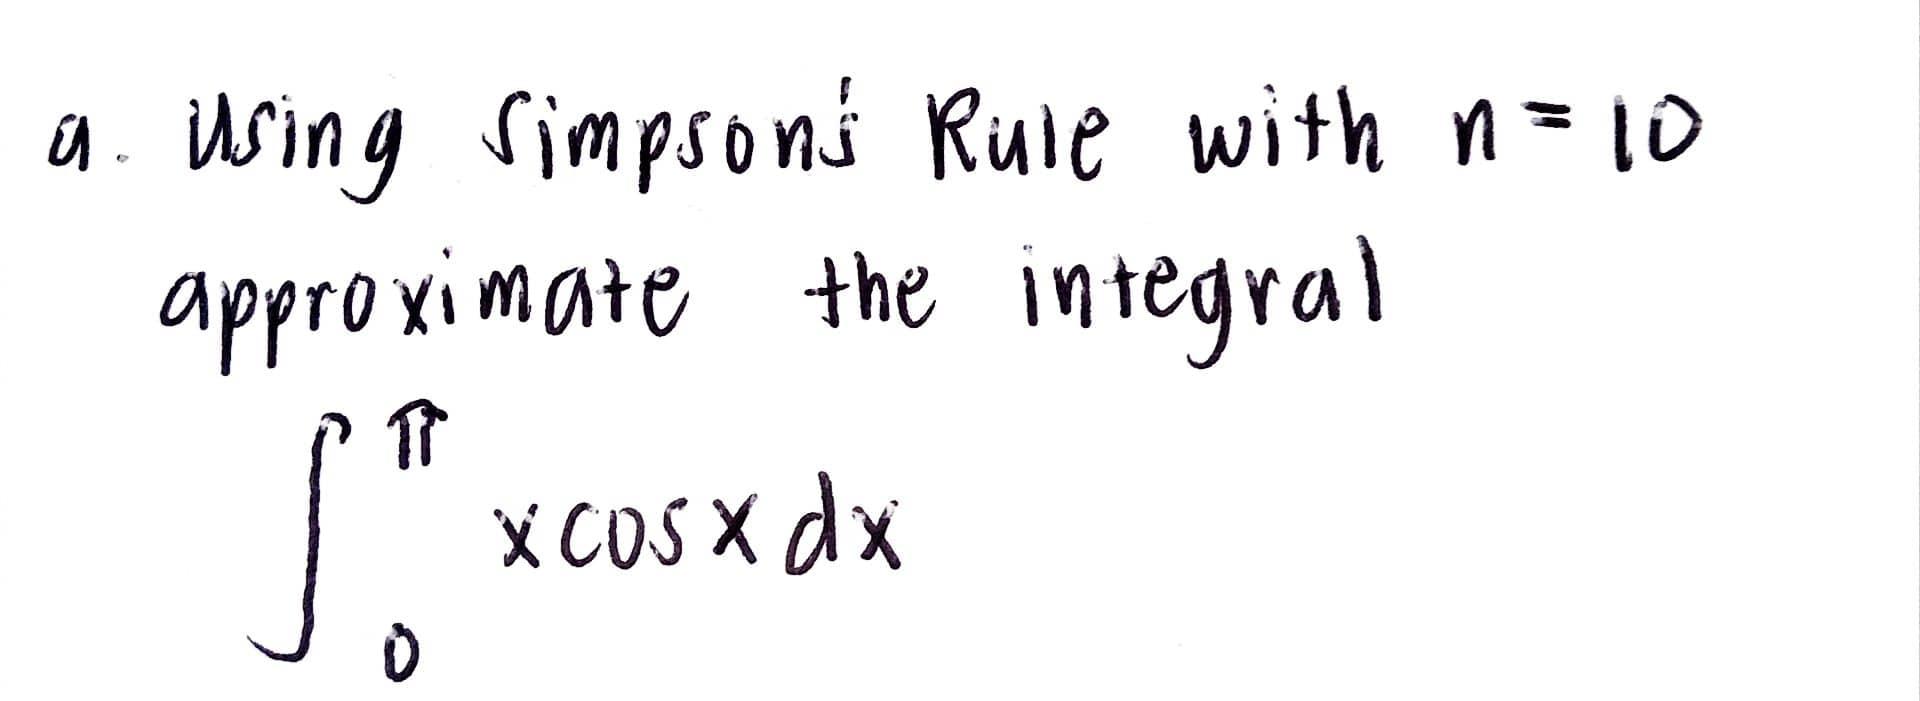 a. Using Simpson's Rule with n = 10
approximate the integral
∫₀^π x cos x dx